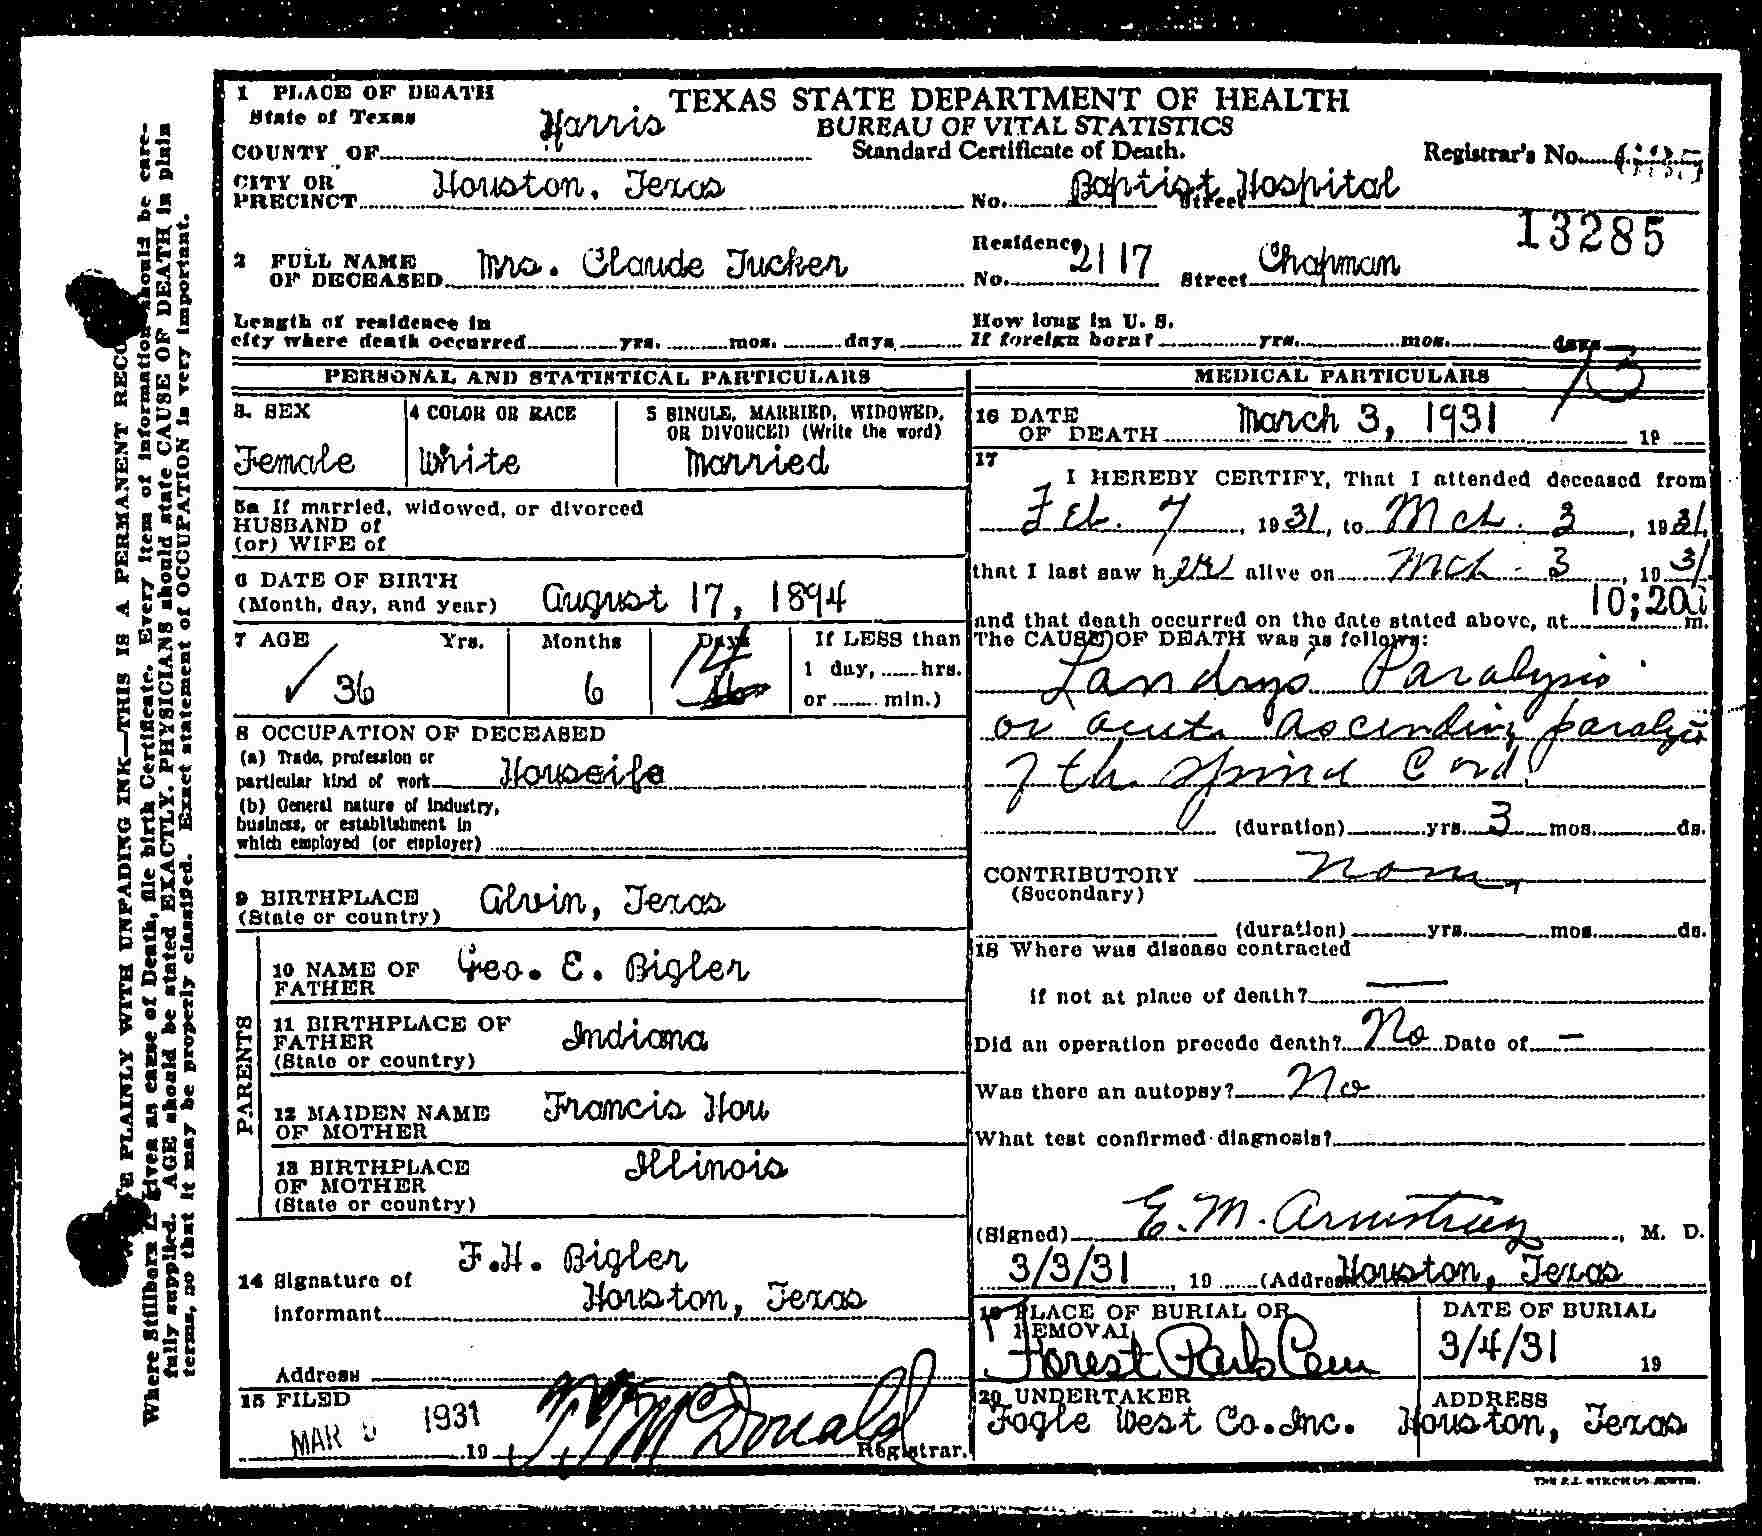 1 PLACE OF DEATH
State of Texas
COUNTY OF Harris
TEXAS STATE DEPARTMENT OF HEALTH
BUREAU OF VITAL STATISTICS
Standard Certificate of Death.
Registrar's No.
CITY OR PRECINCT Houston, Texas
No. Baptist Hospital Street
13285
2 FULL NAME OF DECEASED Mrs. Claude Tucker
Residence No. 2117 Street Chapman
Length of residence in
city where death occurred yrs. mos. days
How long in U. S.
If foreign born? yrs. mos. days
PERSONAL AND STATISTICAL PARTICULARS
3. SEX
Female
4 COLOR OR RACE
White
5 SINGLE, MARRIED, WIDOWED,
OR DIVORCED (Write the word)
Married
5a If married, widowed, or divorced
HUSBAND of
(or) WIFE of
6 DATE OF BIRTH
(Month, day, and year) August 17, 1894
7 AGE Yrs. Months Days
36 6 14
If LESS than
1 day, hrs.
or min.)
8 OCCUPATION OF DECEASED
(a) Trade, profession or
particular kind of work Houseife
(b) General nature of industry,
business, or establishment in
which employed (or employer)
9 BIRTHPLACE
(State or country) Alvin, Texas
PARENTS
10 NAME OF
FATHER Geo. E. Bigler
11 BIRTHPLACE OF
FATHER
(State or country) Indiana
12 MAIDEN NAME
OF MOTHER Francis Hou
13 BIRTHPLACE
OF MOTHER
(State or country) Illinois
14 Signature of
informant F.H. Bigler
Houston, Texas
Address
15 FILED
MAR 5 1931 19
McDonald
Registrar.
MEDICAL PARTICULARS
16 DATE
OF DEATH March 3, 1931 19
17
I HEREBY CERTIFY, That I attended deceased from
Feb. 7, 1931, to Mch. 3, 1931,
that I last saw her alive on Mch. 3, 1931,
and that death occurred on the date stated above, at 10:20a m.
The CAUSE OF DEATH was as follows:
Landry's Paralysis
or acute ascending paralysis
of the spinal Cord.
(duration) yrs. 3 mos. ds.
CONTRIBUTORY None
(Secondary)
(duration) yrs. mos. ds.
18 Where was disease contracted
if not at place of death? —
Did an operation precede death? No Date of —
Was there an autopsy? No
What test confirmed diagnosis?
(Signed) E. M. Armstrong, M. D.
3/3/31, 19 (Address Houston, Texas
19 PLACE OF BURIAL OR
REMOVAL
Forest Park Cem
DATE OF BURIAL
3/4/31 19
20 UNDERTAKER
Fogle West Co. Inc.
ADDRESS
Houston, Texas
PLAINLY WITH UNFADING INK—THIS IS A PERMANENT RECO
Where Stillborn is given as cause of Death, file birth Certificate. Every item of information should be care-
fully supplied. AGE should be stated EXACTLY. PHYSICIANS should state CAUSE OF DEATH in plain
terms, so that it may be properly classified. Exact statement of OCCUPATION is very important.